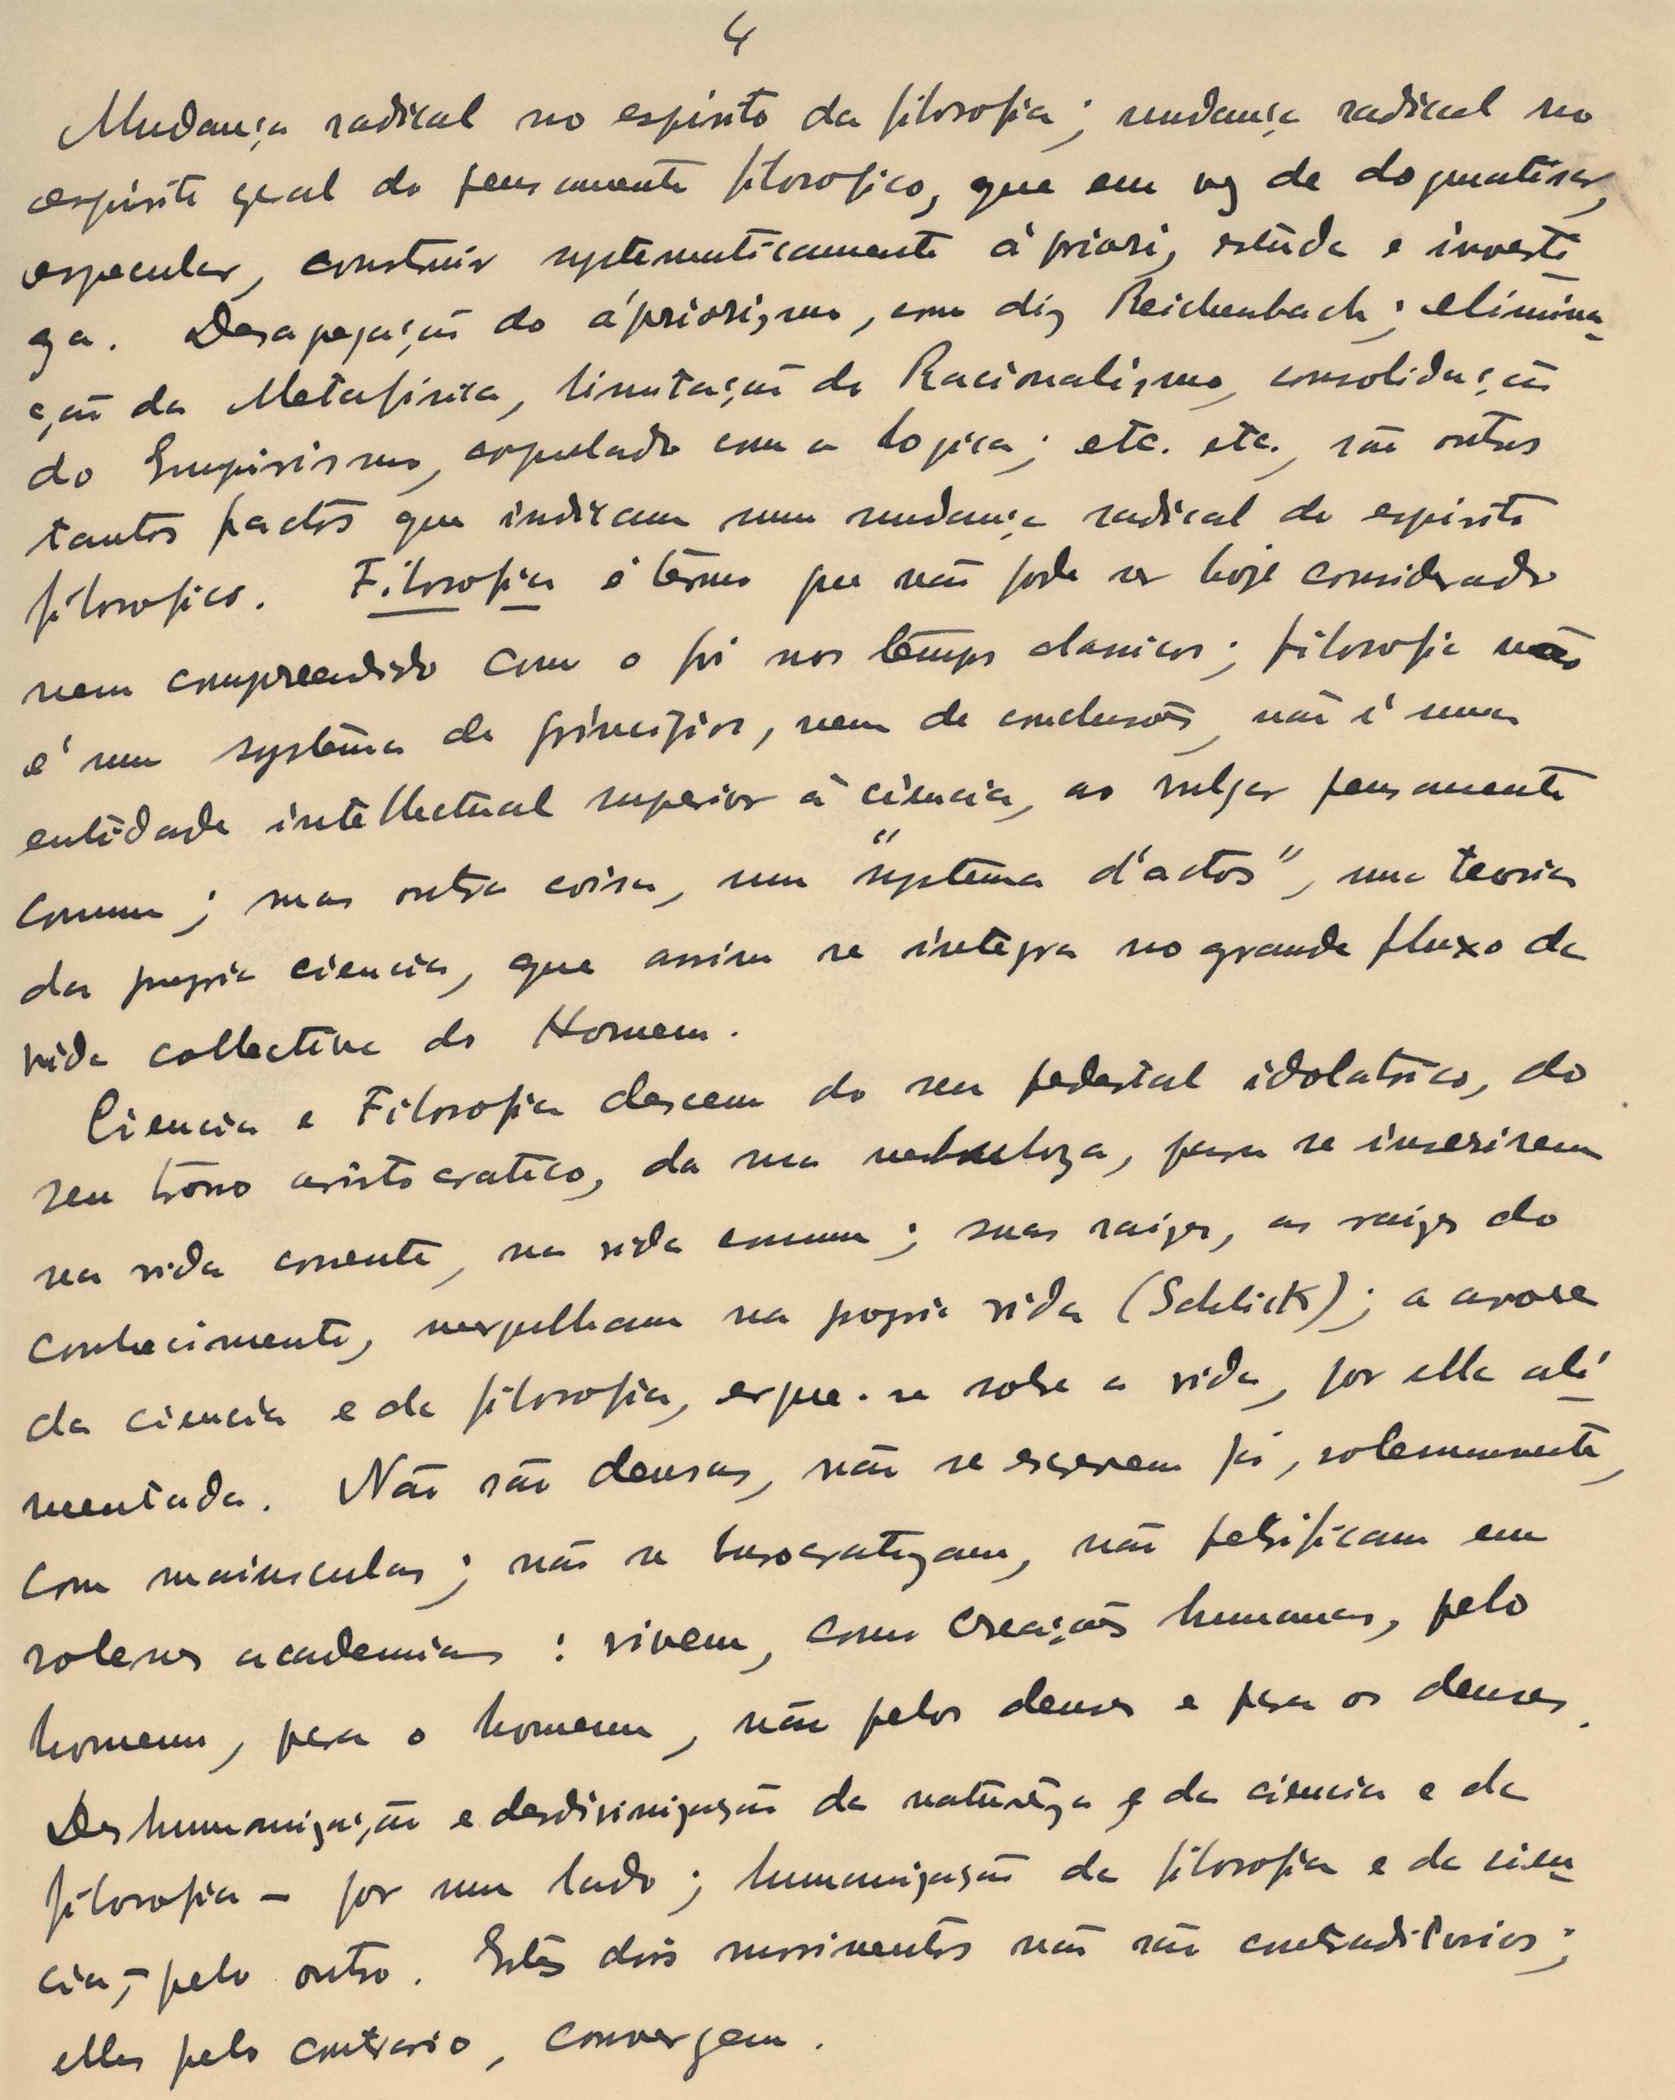 4
Mudança radical no espirito da filosofia; mudança radical no
espirito geral do pensamento filosofico, que em vez de dogmatisar,
especular, construir systematicamente à priori, estuda e investi-
ga. Desagregação do ápriorismo, como diz Reichenbach; elimina-
ção da Metafisica, limitação do Racionalismo, consolidação
do Empirismo, copulado com a Logica; etc. etc., são outros
tantos factos que indicam uma mudança radical do espirito
filosofico. Filosofia é têrmo que não pode ser hoje considerado
nem compreendido como o foi nos tempos classicos; filosofia não
é um systêma de principios, nem de conclusões, não é uma
entidade intellectual superior à ciencia, ao vulgar pensamento
comum; mas outra coisa, um "systema d'actos", uma teoria
da propria ciencia, que assim se integra no grande fluxo da
vida collectiva do Homem.
Ciencia e Filosofia descem do seu pedestal idolatrico, do
seu trono aristocratico, da sua nebuloza, para se inserirem
na vida corrente, na vida comum; suas raizes, as raizes do
conhecimento, mergulham na propria vida (Schlick); a arvore
da ciencia e da filosofia, ergue-se sobre a vida, por ella ali-
mentada. Não são deusas, não se escrevem já, solemnemente,
com maiusculas; não se burocratizam, não petrificam em
solenes academias: vivem, como creações humanas, pelo
homem, para o homem, não pelos deuses e para os deuses.
Deshumanização e desdivinização da natureza e da ciencia e da
filosofia – por um lado; humanização da filosofia e da cien-
cia, – pelo outro. Estes dois movimentos não são contraditorios;
elles pelo contrario, convergem.